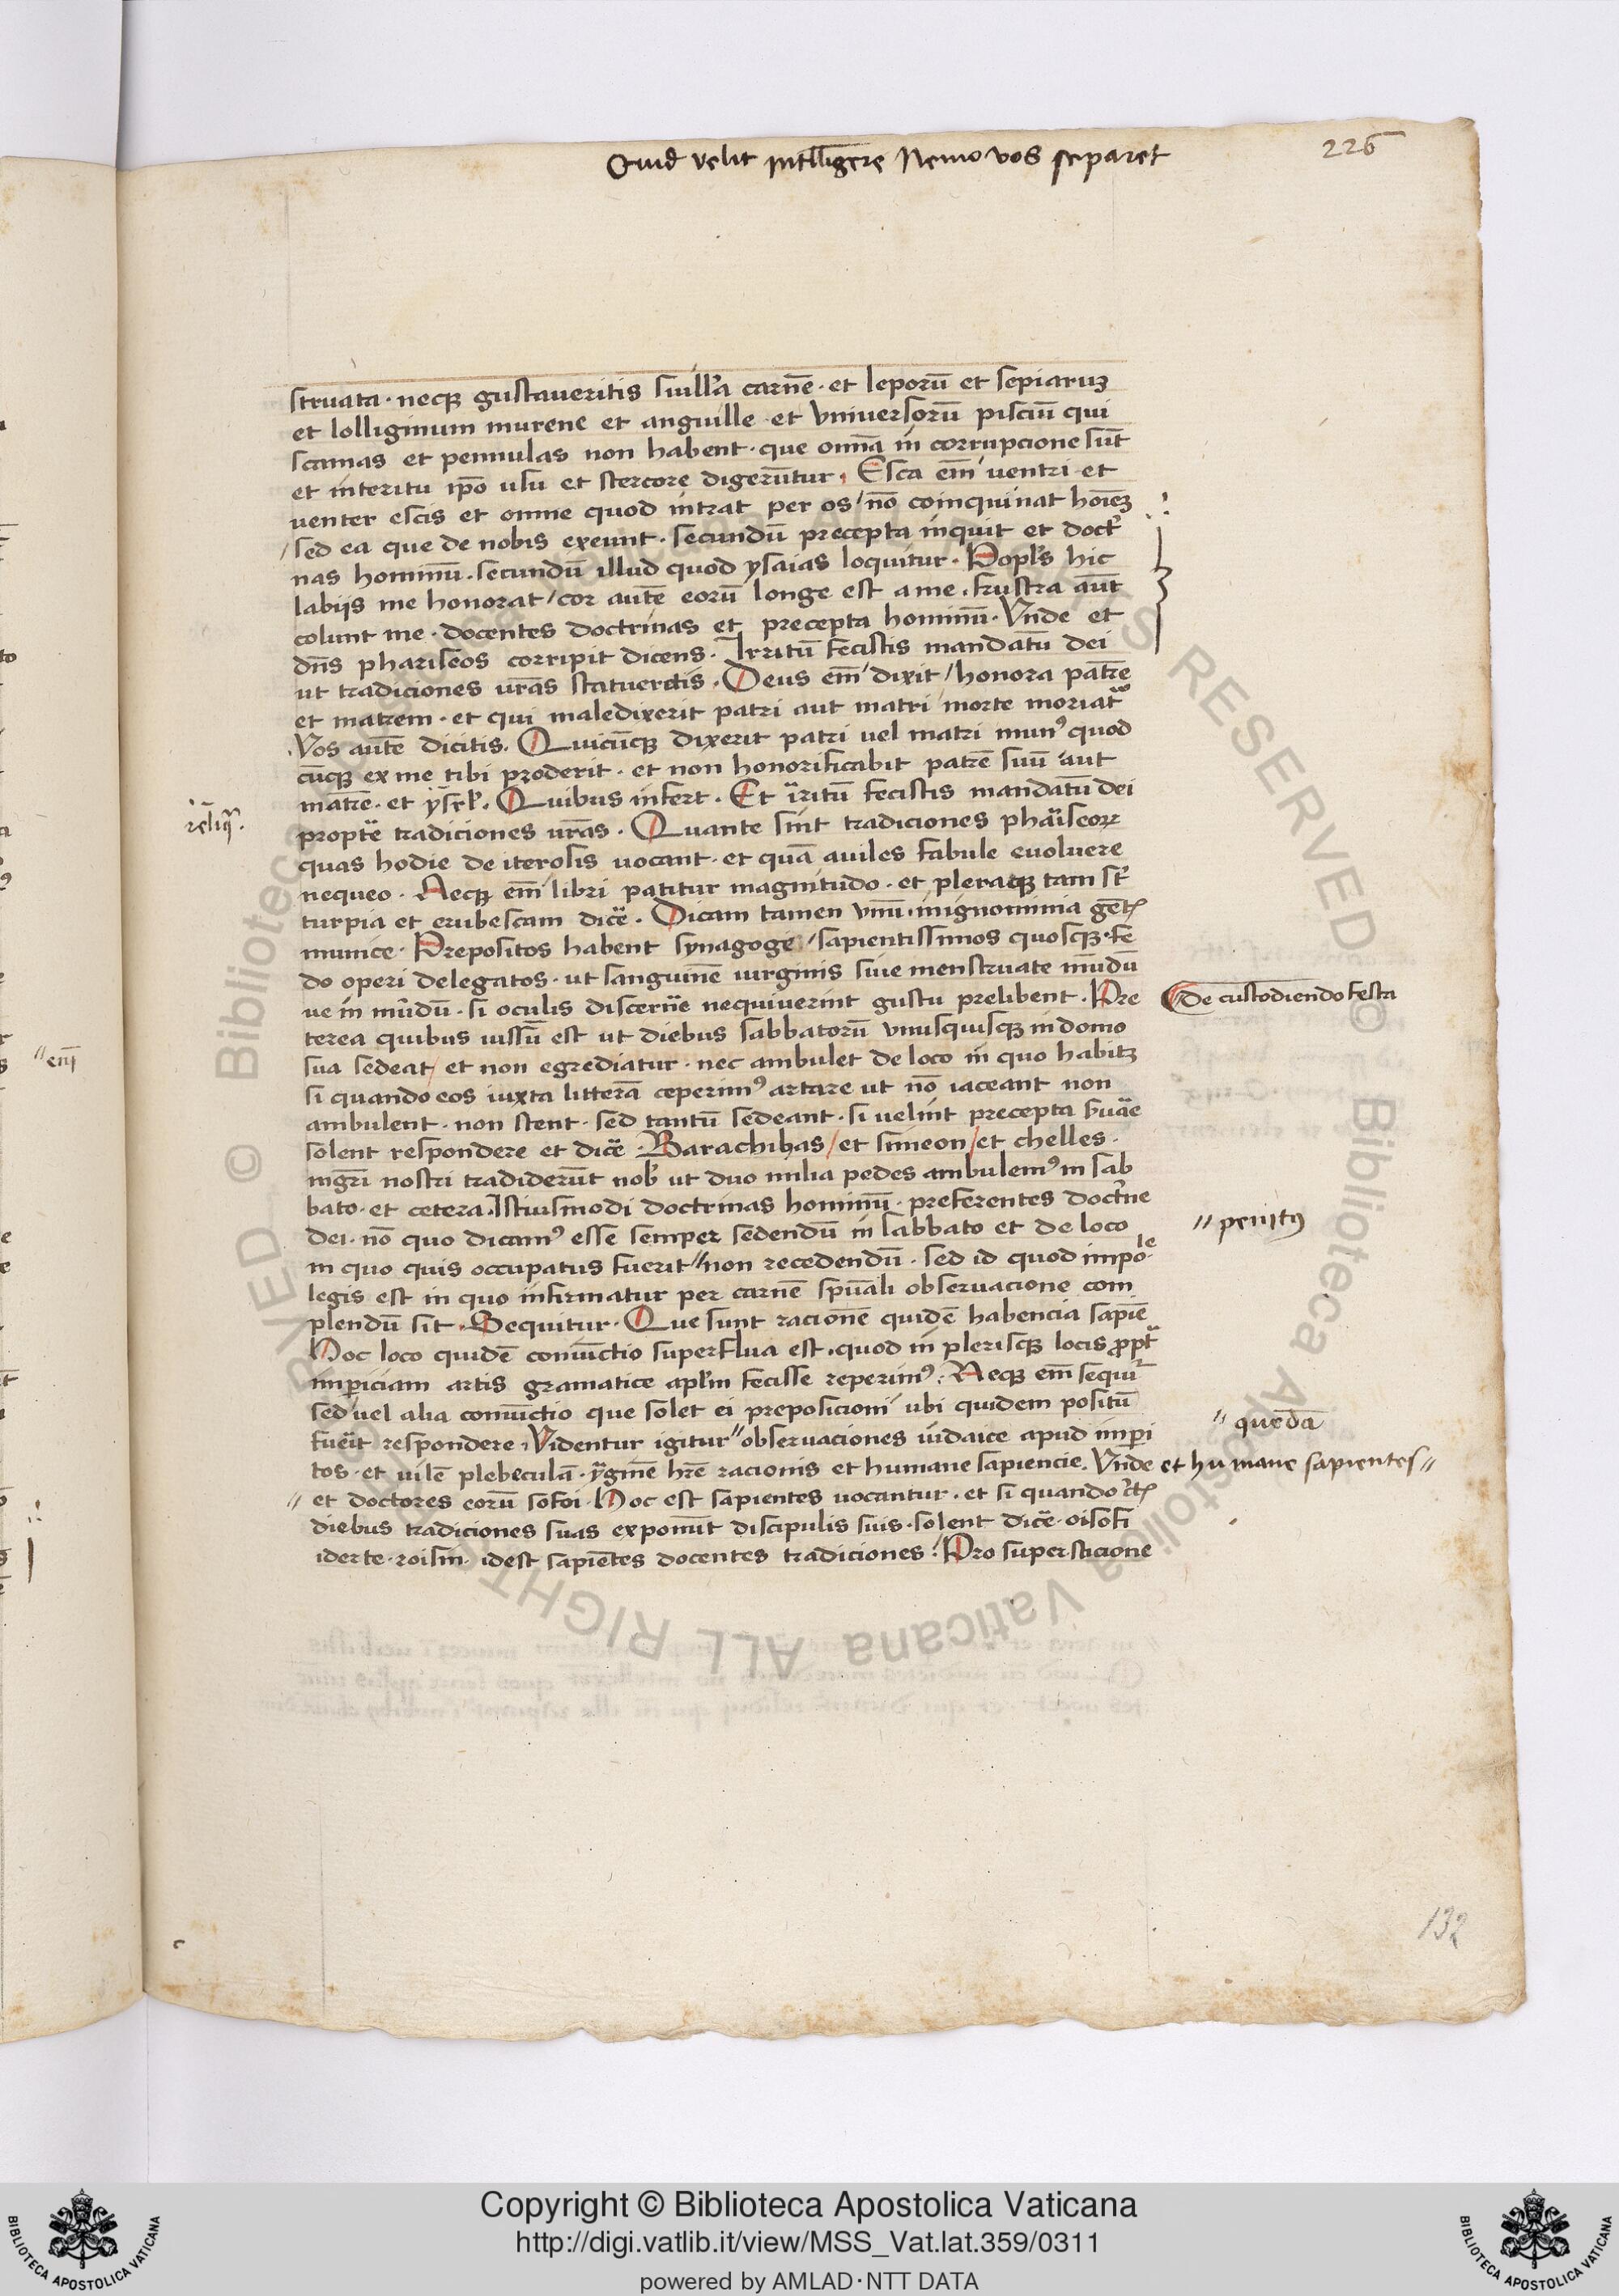 Quid velit intllīgere Nemo vos separet
226
struata · necqꝫ gustaueritis suillā carnē · et leporū et sepiaruꝫ
et lolliginum murene et anguille · et vniuersorū pisciū qui
scamas et pennulas non habent · que omīa in corrupcione sūt
et interitu ip̄o usu et stercore digerūtur · Esca em̄ uentri et
uenter escis et omne quod intrat per os / nō coinquinat hoīeꝫ
/ sed ea que de nobis exeunt · secundū precepta inquit et doctⁱ
nas hominū · secundū illud quod ysaias loquitur · Popl̄s hic
labijs me honorat / cor autē eorū longe est a me · frustra aūt
colunt me · docentes doctrinas et precepta hominū · Vnde et
dn̄s phariseos corripit dicens · Irritū fecistis mandatū dei
ut tradiciones vr̄as statueretis · Deus em̄ dixit / honora patrē
et matrem · et qui maledixerit patri aut matri morte moriat᷑
Vos autē dicitis · Quicūqꝫ dixerit patri uel matri munꝰ quod
cūqꝫ ex me tibi proderit · et non honorificabit patrē suū aut
matrē · et ysrl̄ · Quibus infert · Et irritū fecistis mandatū dei
reliqͣ ·
propt̄ tradiciones vr̄as · Quante sint tradiciones phariseoꝝ
quas hodie de iterosis uocant · et quā aniles fabule euoluere
nequeo · Aecqꝫ em̄ libri patitur magnitudo · et pleraqꝫ tam st̄
turpia et erubescam dicē · Dicam tamen vnū · in ignominia gēt
munice · Prepositos habent synagoge / sapientissimos quosqꝫ · fe
do operi delegatos · ut sanguinē uirginis siue menstruate mūdū
ue in mūdū · si oculis discernē nequiuerint gustu prelibent · Pre
De custodiendo festa
terea quibus iussū est ut diebus sabbatorū vnusquisqꝫ in domo
sua sedeat / et non egrediatur · nec ambulet de loco in quo habitꝫ
" em̄
si quando eos iuxta litterā ceperimꝰ artare ut nō iaceant non
ambulent · non stent · sed tantū sedeant · si uelint precepta suāe
solent respondere et dicē · Barachibas / et simeon / et chelles ·
mgr̄i nostri tradiderūt nob̄ ut duo milia pedes ambulemꝰ in sab
bato · et cetera · Istiusmodi doctrinas hominū · preferentes doctⁱne
dei · nō quo dicamꝰ esse semper sedendū in sabbato et de loco
" penitꝰ
in quo quis occupatus fuerit " non recedendū · sed id quod impoˡᵉ
legis est in quo infirmatur per carnē spūali obseruacione com
plendū sit · Sequitur · Que sunt racionē quidē habencia sapiē
Hoc loco quidē coniūctio superflua est · quod in plerisqꝫ locis ꝓpt᷑
imꝑiciam artis gramatice apl̄m fecisse reperimꝰ · Aecqꝫ em̄ sequit᷑
sed uel alia coniūctio que solet ei preposicioni ubi quidem positū
fuerit respondere · Videntur igitur " obseruaciones iudaice apud imꝑi
" quedā
tos · et uilē plebeculā · ymaginē hr̄e racionis et humane sapiencie · Vnde et humane sapientes "
" et doctores eorū sofoi · Hoc est sapientes uocantur · et si quando
diebus tradiciones suas exponūt discipulis suis · solent dicē · oisofi
iderte · roisin · idest sapiētes docentes tradiciones : Pro supersticione
132
Copyright © Biblioteca Apostolica Vaticana
http://digi.vatlib.it/view/MSS_Vat.lat.359/0311
powered by AMLAD·NTT DATA
BIBLIOTECA APOSTOLICA VATICANA
BIBLIOTECA APOSTOLICA VATICANA